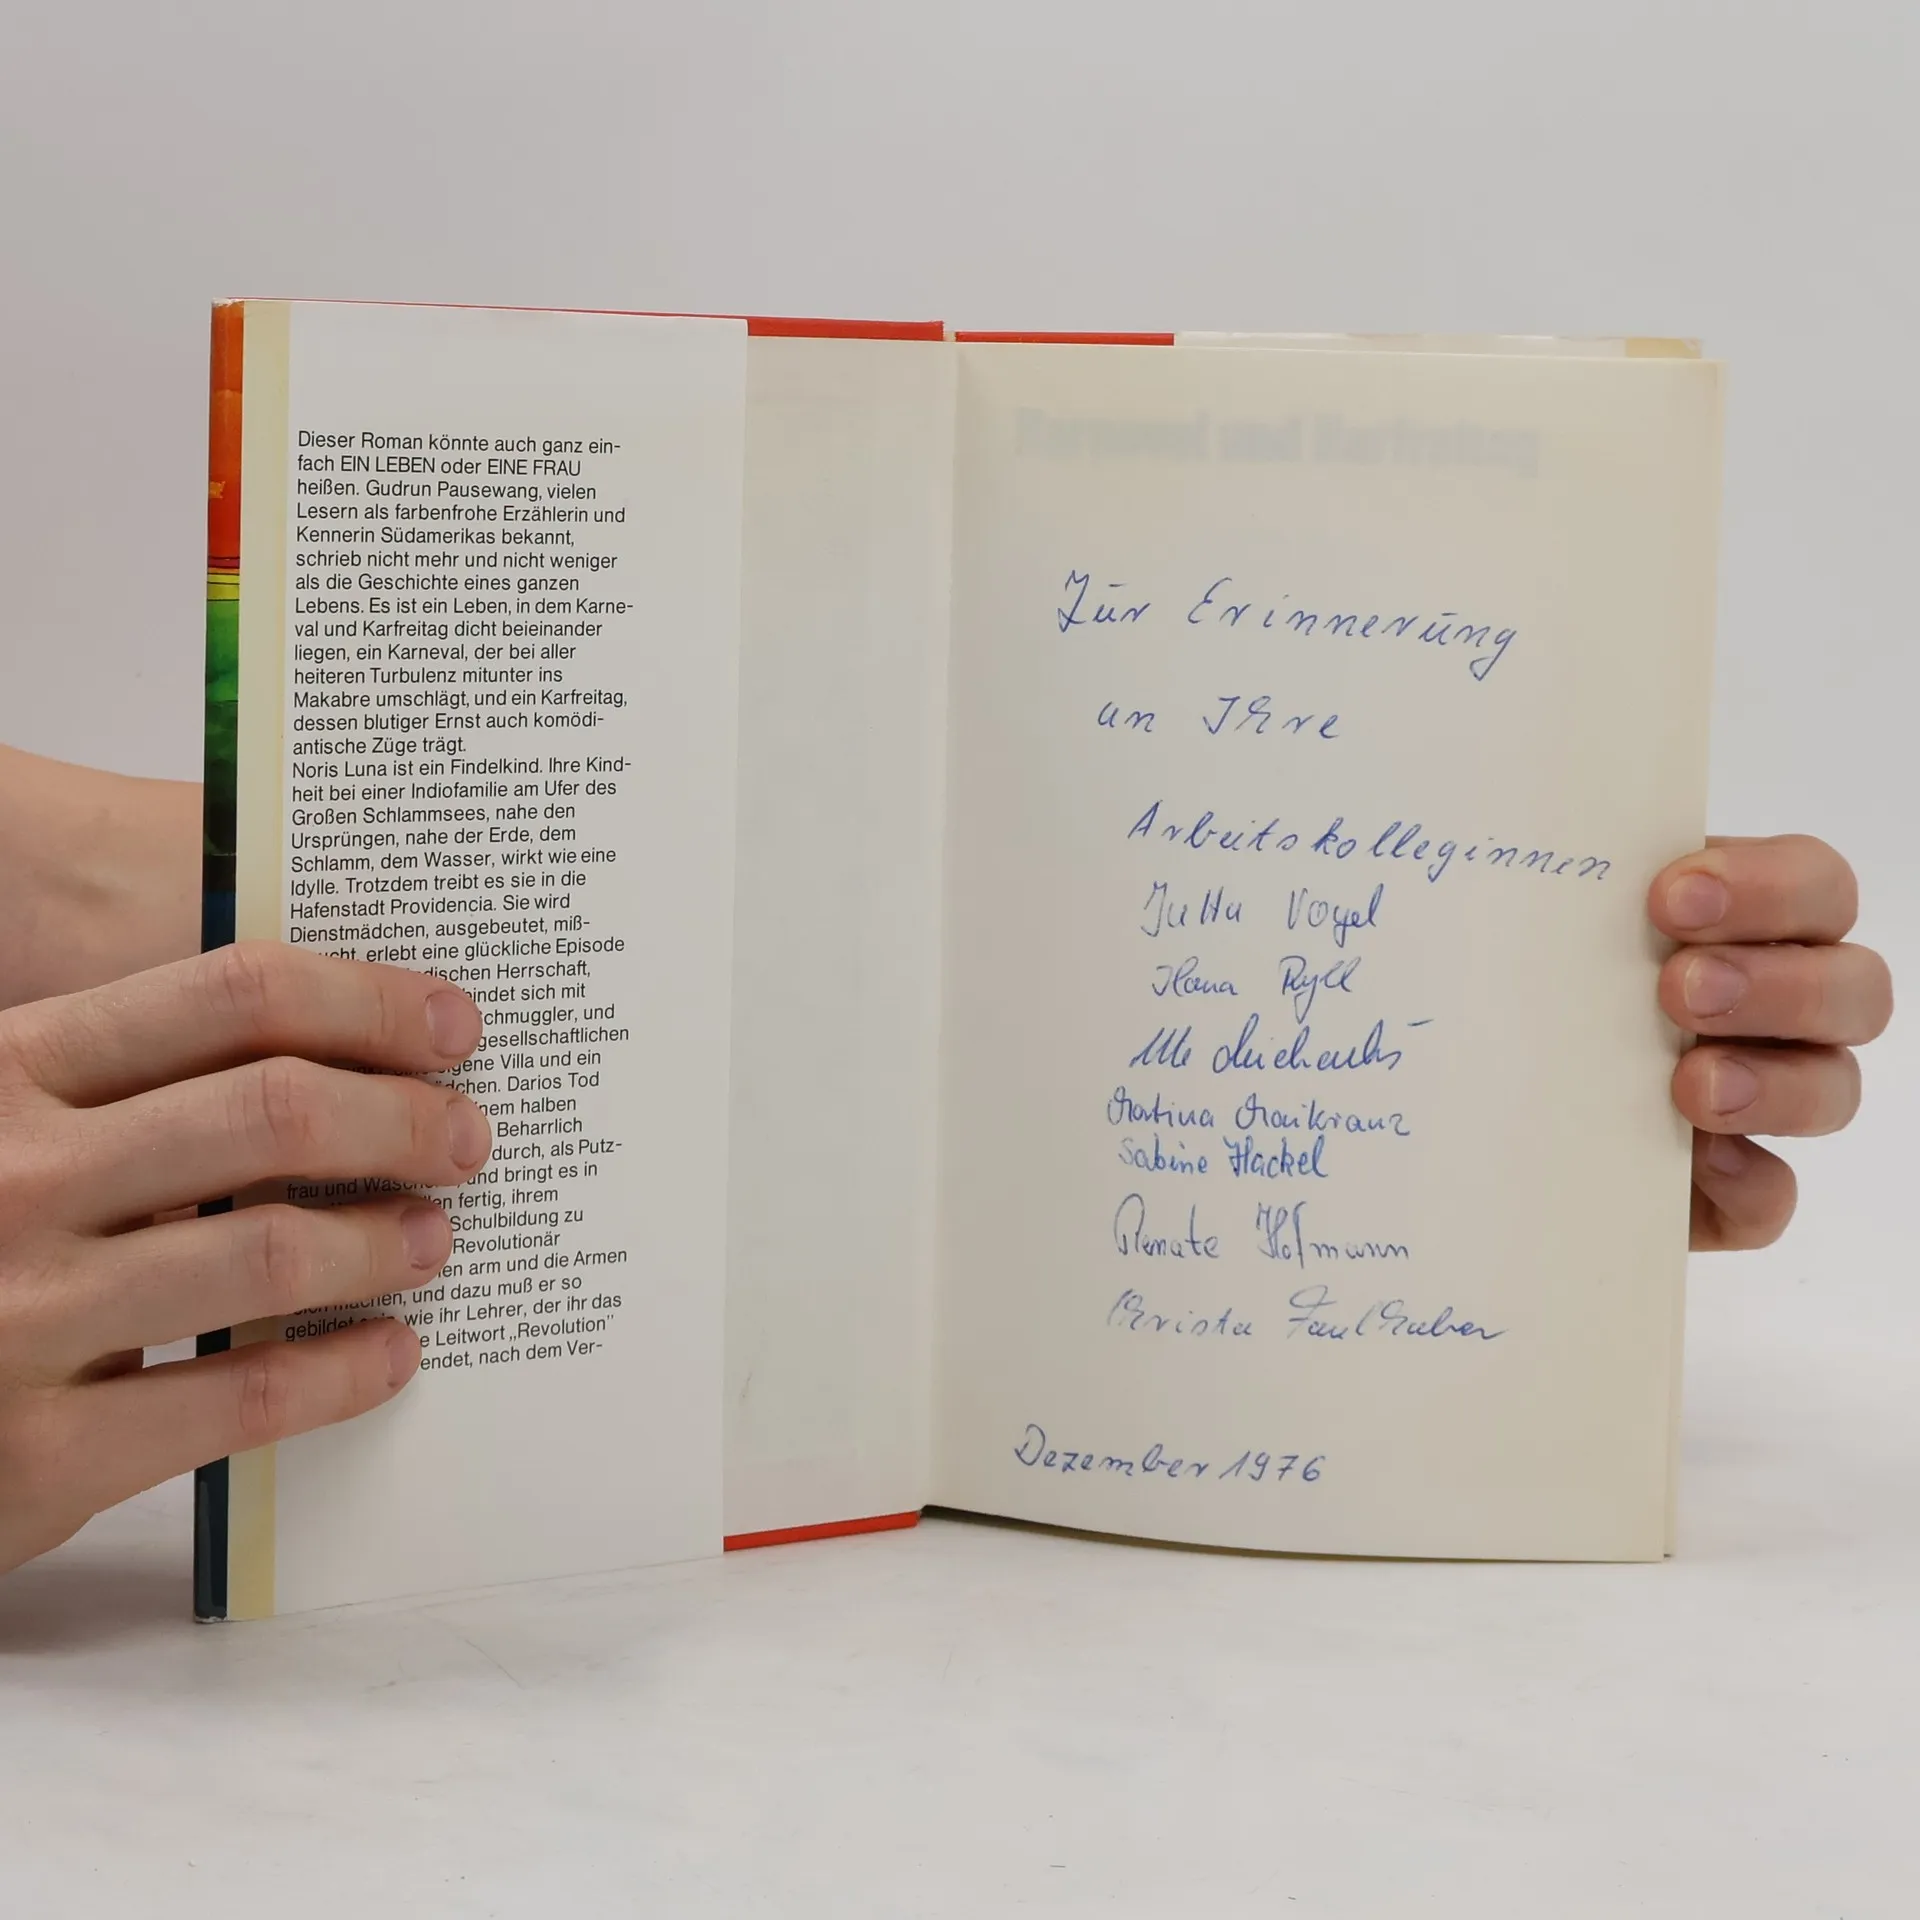 Dieser Roman könnte auch ganz ein-
fach EIN LEBEN oder EINE FRAU
heißen. Gudrun Pausewang, vielen
Lesern als farbenfrohe Erzählerin und
Kennerin Südamerikas bekannt,
schrieb nicht mehr und nicht weniger
als die Geschichte eines ganzen
Lebens. Es ist ein Leben, in dem Karne-
val und Karfreitag dicht beieinander
liegen, ein Karneval, der bei aller
heiteren Turbulenz mitunter ins
Makabre umschlägt, und ein Karfreitag,
dessen blutiger Ernst auch komödi-
antische Züge trägt.
Noris Luna ist ein Findelkind. Ihre Kind-
heit bei einer Indiofamilie am Ufer des
Großen Schlammsees, nahe den
Ursprüngen, nahe der Erde, dem
Schlamm, dem Wasser, wirkt wie eine
Idylle. Trotzdem treibt es sie in die
Hafenstadt Providencia. Sie wird
Dienstmädchen, ausgebeutet, miß-
ucht, erlebt eine glückliche Episode
dischen Herrschaft,
indet sich mit
chmuggler, und
gesellschaftlichen
igene Villa und ein
dchen. Darios Tod
nem halben
Beharrlich
durch, als Putz-
frau und und bringt es in
en fertig, ihrem
Schulbildung zu
Revolutionär
en arm und die Armen
machen, und dazu muß er so
gebildet wie ihr Lehrer, der ihr das
e Leitwort „Revolution"
endet, nach dem Ver-
Zur Erinnerung
an Ihre
Arbeitskolleginnen
Jutta Vogel
Ilona Ryll
Ute
Sabine Hackel
Renate Hofmann
Christa Faulhaber
Dezember 1976